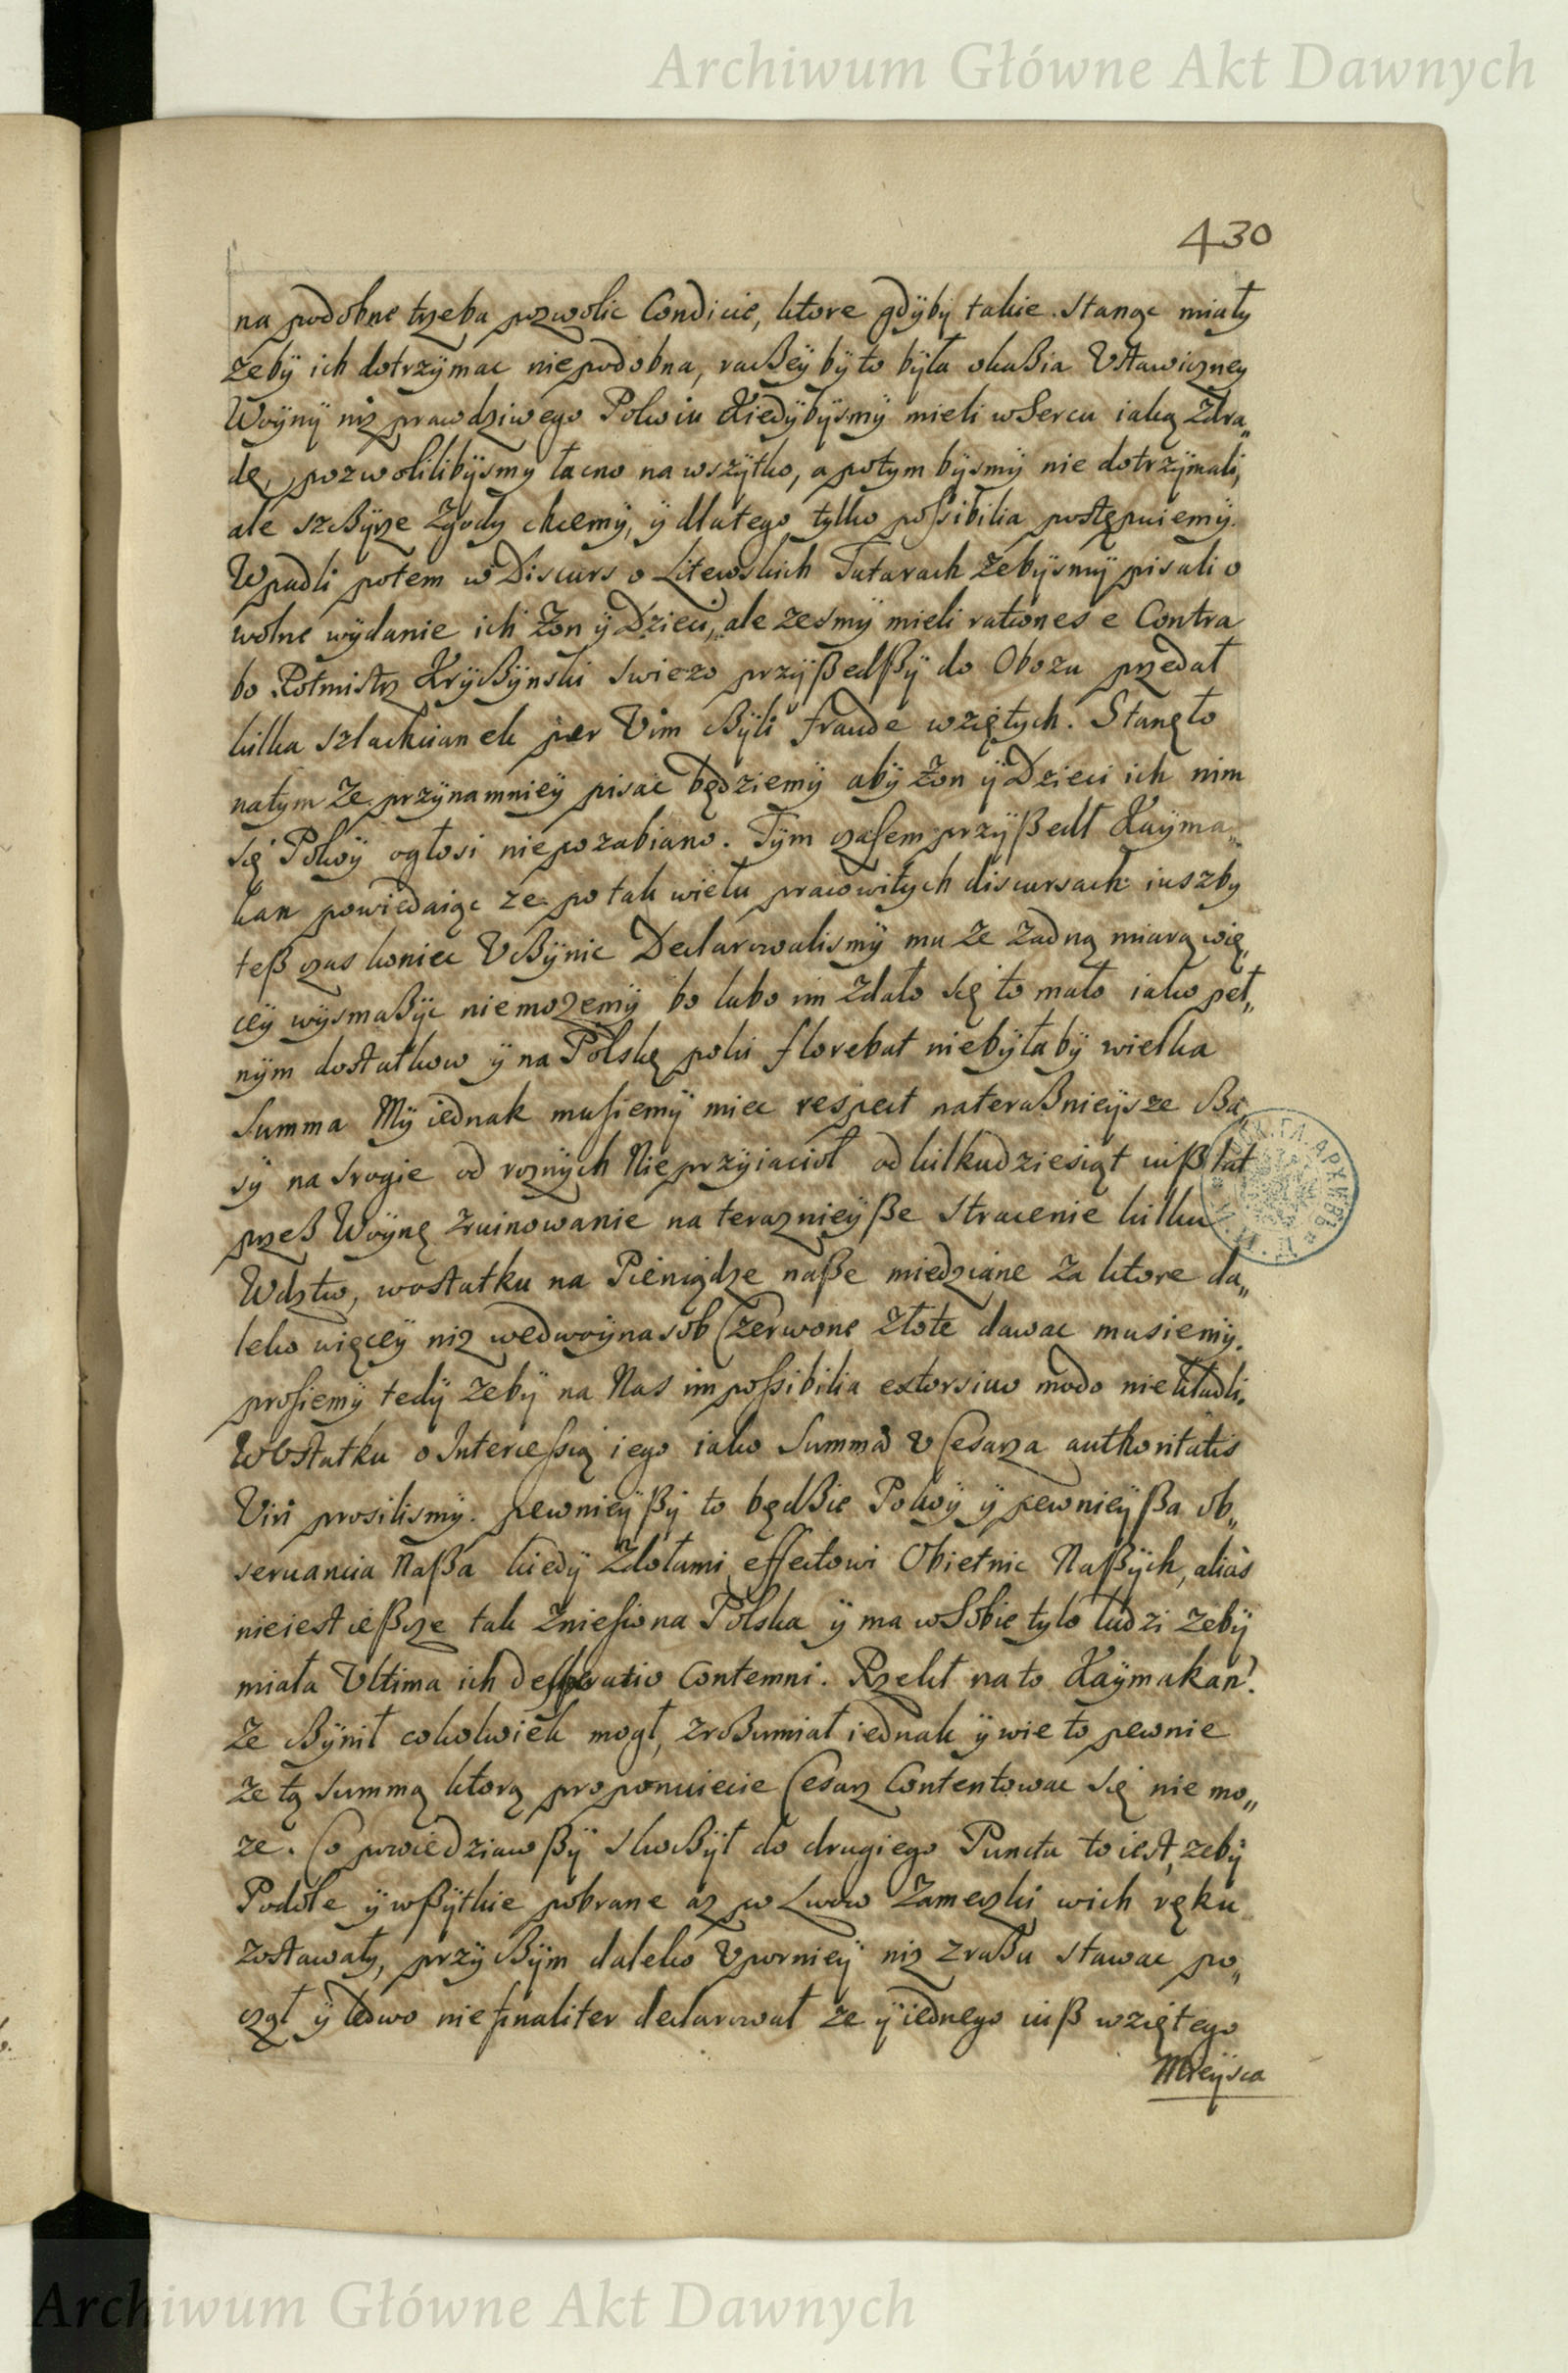 Archiwum Główne Akt Dawnych
430
na podobne trzeba pozwolic Condicie, ktore gdÿbÿ takie stanąc miałÿ
żebÿ ich dotrzÿmac niepodobna, raczßeÿ bÿ to bÿła okaßia Vstawiczneÿ
Woÿnÿ niz prawdziwego Pokoiu Kiedÿbÿsmÿ mieli w Sercu iaką Zdra„
dę, pozwolilibÿsmy łacno na wszÿtko, a potym bÿsmÿ nie dotrzÿmali,
ale szczÿrze Zgodÿ chcemÿ, ÿ dlatego tylko possibilia postępuiemÿ.
Wpadli potem w Discurs o Litewskich Tatarach żebÿsmÿ pisali o
wolne wÿdanie ich Żon ÿ Dzieci, ale żesmÿ mieli rationes e Contra
bo Rotmistrz Krÿczÿnski swiezo przÿßedßÿ do Obozu przedał
kilka szlachcianek per Vim czÿli fraude wziętych. Stanęło
natym że przÿnamnieÿ pisac będziemÿ abÿ Żon ÿ Dzieci ich nim
się Pokoÿ ogłosi niepozabiano. Tÿm czasem przÿßedł Kaÿma„
kan powiedaiąc że po tak wielu pracowitÿch discursach iuszby
teß czas koniec Vczÿnic Declarowalismÿ mu że żadną miarą wię„
ceÿ wÿsmażÿc niemożemÿ bo lubo im zdało się to mało iako peł„
nÿm dostatkow ÿ na Polskę poki florebat niebÿłabÿ wielka
Summa Mÿ iednak musiemÿ miec respect nateraźnieÿsze cza„
sÿ na srogie od roznÿch Nieprzÿiacioł od kilkudziesiąt iuß lat
przeß Woÿnę zruinowanie na teraznieÿße stracenie kilku
Wdztw, wostatku na Pieniądze naße miedziane za ktore da„
leko więceÿ niz wedwoÿnasob Czerwone Złote dawac musiemÿ.
prosiemÿ tedÿ żebÿ na Nas impossibilia extorsiuo modo niekładli.
Wostatku o Intercessią iego iako Summa v Cesarza authoritatis
Viri prosilismÿ. pewnieÿßÿ to będzie Pokoÿ ÿ pewnieÿßa ob„
seruancia Naßa kiedÿ zdołamÿ effectowi Obietnic Naßÿch, alias
nieiest ießcze tak zniesiona Polska ÿ ma w Sobie tylo ludzi żebÿ
miała Vltima ich desperatio Contemni. Rzekł na to Kaÿmakan
że czÿnił cokolwiek mogł, zrozumiał iednak ÿ wie to pewnie
że tą summą ktorą proponuiecie Cesarz Contentowac się nie mo„
że. Co powiedziawßÿ skoczÿł do drugiego Punctu to iest, żebÿ
Podole ÿ wßÿtkie pobrane az po Lwow Zameczki wich ręku
zostawałÿ, przÿ czÿm daleko Vpornieÿ niz zrazu stawac po„
czął ÿ ledwo nie finaliter declarował że ÿ iednego iuß wziętego
Mieÿsca
Archiwum Główne Akt Dawnych